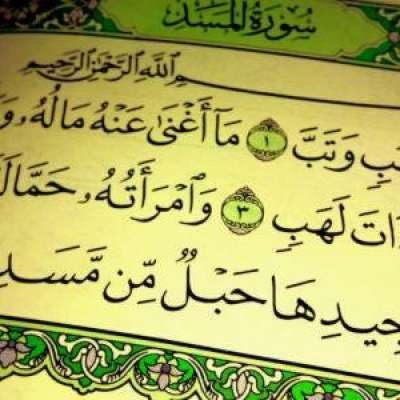 سُورَةُ المَسَدِ
ـسْمِ ٱللَّهِ ٱلرَّحْمَٰنِ ٱلرَّحِيمِ
ـبٍ وَتَبَّ ١ مَآ أَغْنَىٰ عَنْهُ مَالُهُۥ وَ
ذَاتَ لَهَبٍ ٣ وَٱمْرَأَتُهُۥ حَمَّالَـ
جِيدِهَا حَبْلٌ مِّن مَّسَدٍ